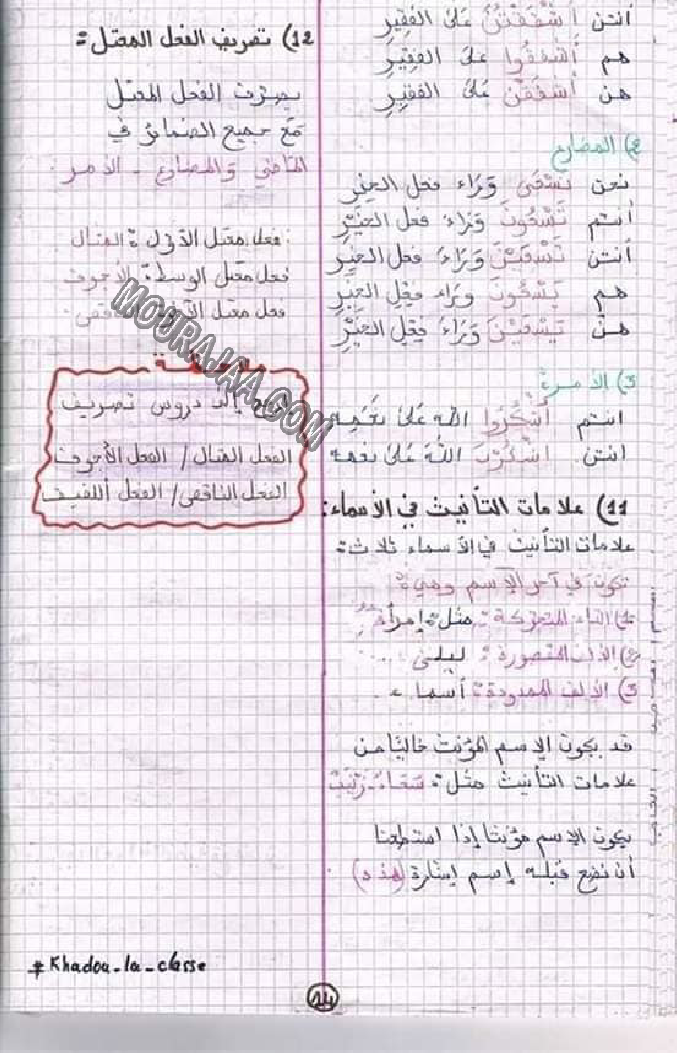 أنتن أشفقتن على الفقير
هم أشفقوا على الفقير
هن أشفقن على الفقير
2) المضارع
نحن نسعى وراء فعل الخير
أنتم تسعون وراء فعل الخير
أنتن تسعين وراء فعل الخير
هم يسعون وراء فعل الخير
هن يسعين وراء فعل الخير
3) الأمر:
أنتم أشكروا الله على نعمه
أنتن اشكرن الله على نعمه
11) علامات التأنيث في الأسماء:
علامات التأنيث في الأسماء ثلاث:
تكون في آخر الإسم وهي:
1) التاء المتحركة: مثل: إمرأة
2) الألف المقصورة: ليلى ...
3) الألف الممدودة: أسماء
قد يكون الإسم المؤنث خاليا من
علامات التأنيث مثل: سعاد - زينب
يكون الإسم مؤنثا إذا استطعنا
أن نضع قبله إسم إشارة (هذه)
12) تصريف الفعل المعتل:
يصرف الفعل المعتل
مع جميع الضمائر في
الماضي والمضارع - الأمر
فعل معتل الأول: المثال
فعل معتل الوسط: الأجوف
فعل معتل الناقص
إلى دروس تصريف
الفعل المثال / الفعل الأجوف
الفعل الناقص / الفعل اللفيف
MOURAJAA.COM
#Khadoa_la_classe
14